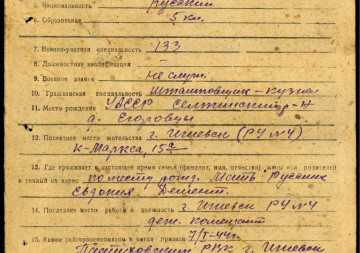 5. Национальность русский
6. Образование 5 кл.
7. Военно-учетная специальность 133
8. Должностная квалификация —
9. Военное звание не служ.
10. Гражданская специальность Штамповщик-кузнец
11. Место рождения УАССР Селтинский р-н
д.
12. Постоянное место жительства г. Ижевск (РУ №4)
К-Маркса, 15а
13. Где проживает в настоящее время семья (фамилия, имя, отчество) жены или родителей
и точный их адрес по месту рожд. Мать Русских
Евдокия Демент.
14. Последнее место работы и должность г. Ижевск РУ №4
деж. комендант
15. Каким райгорвоенкоматом и когда призван 7/I-44г.
РВК г. Ижевск